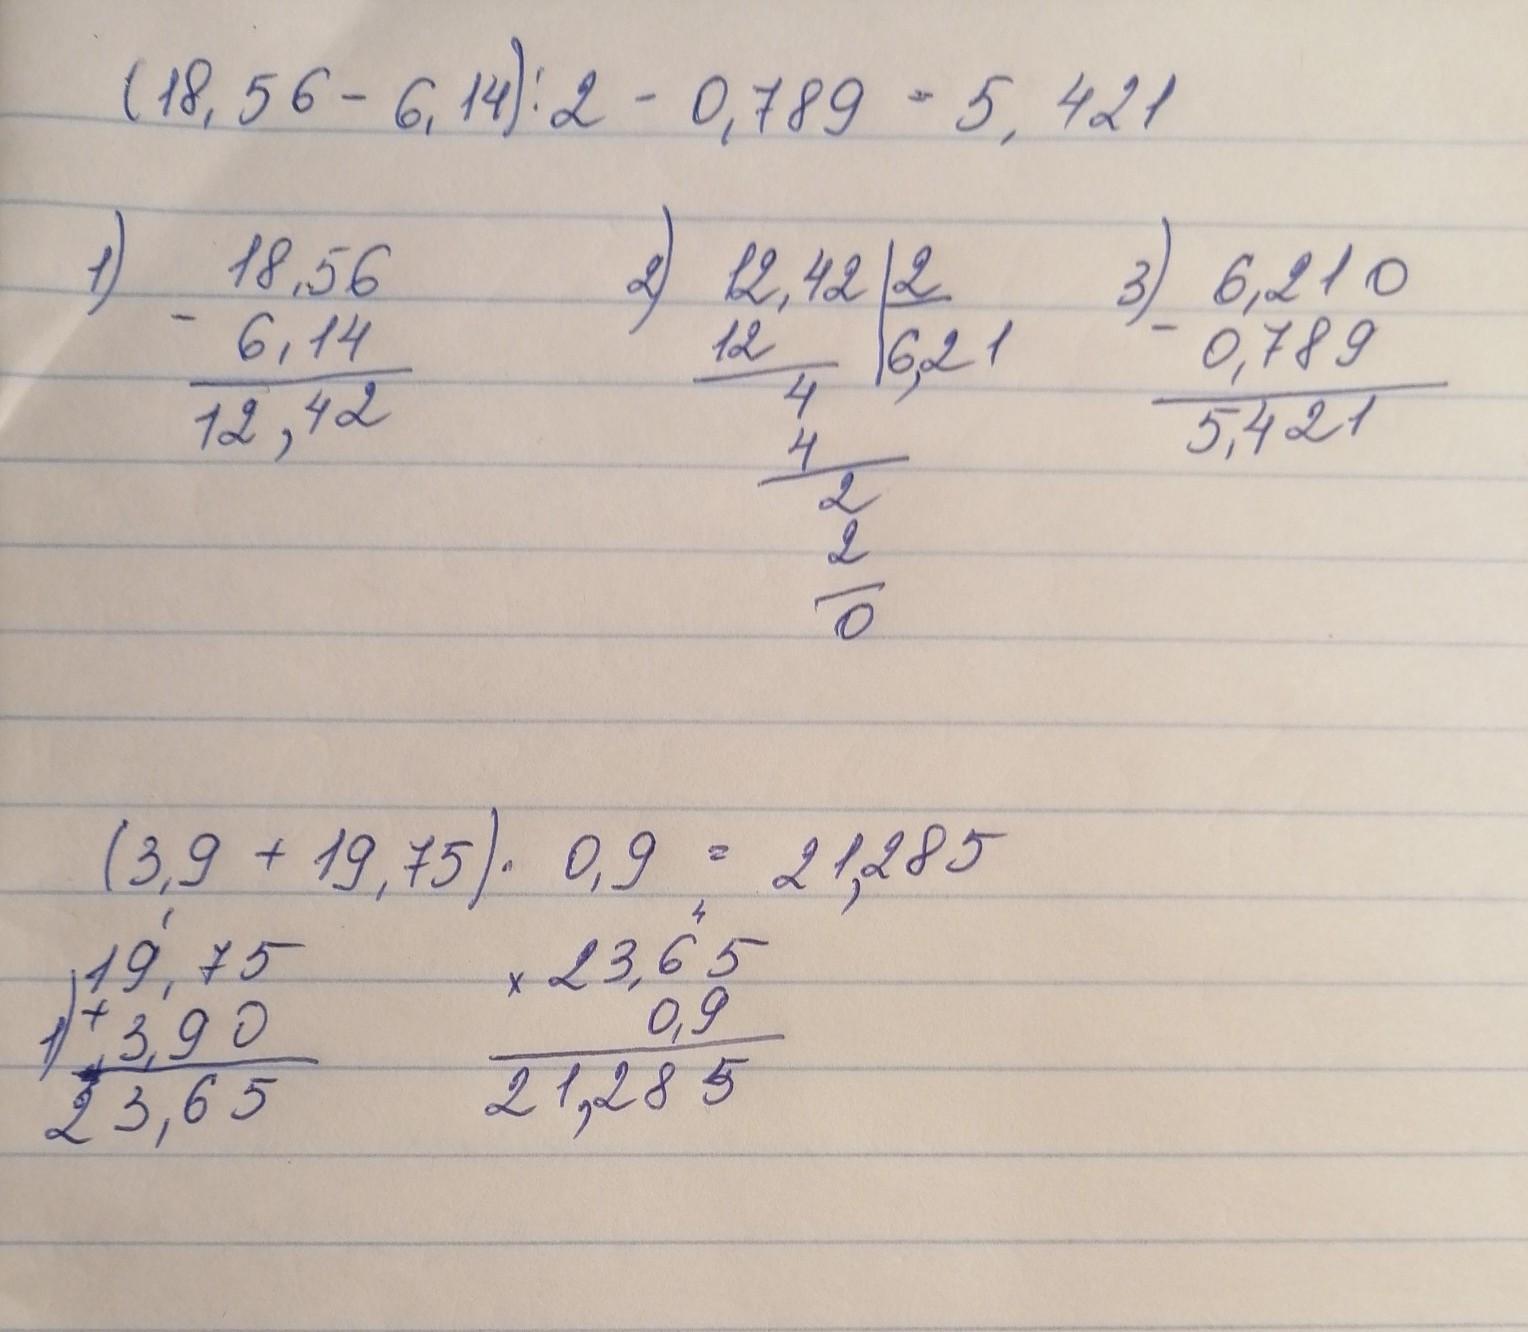 (18,56 - 6,14) : 2 - 0,789 = 5,421
1) 18,56
- 6,14
12,42
2) 12,42 | 2
12 | 6,21
4
4
2
2
0
3) 6,210
- 0,789
5,421
(3,9 + 19,75) · 0,9 = 21,285
1
19,75
1) + 3,90
23,65
4
x 23,65
0,9
21,285